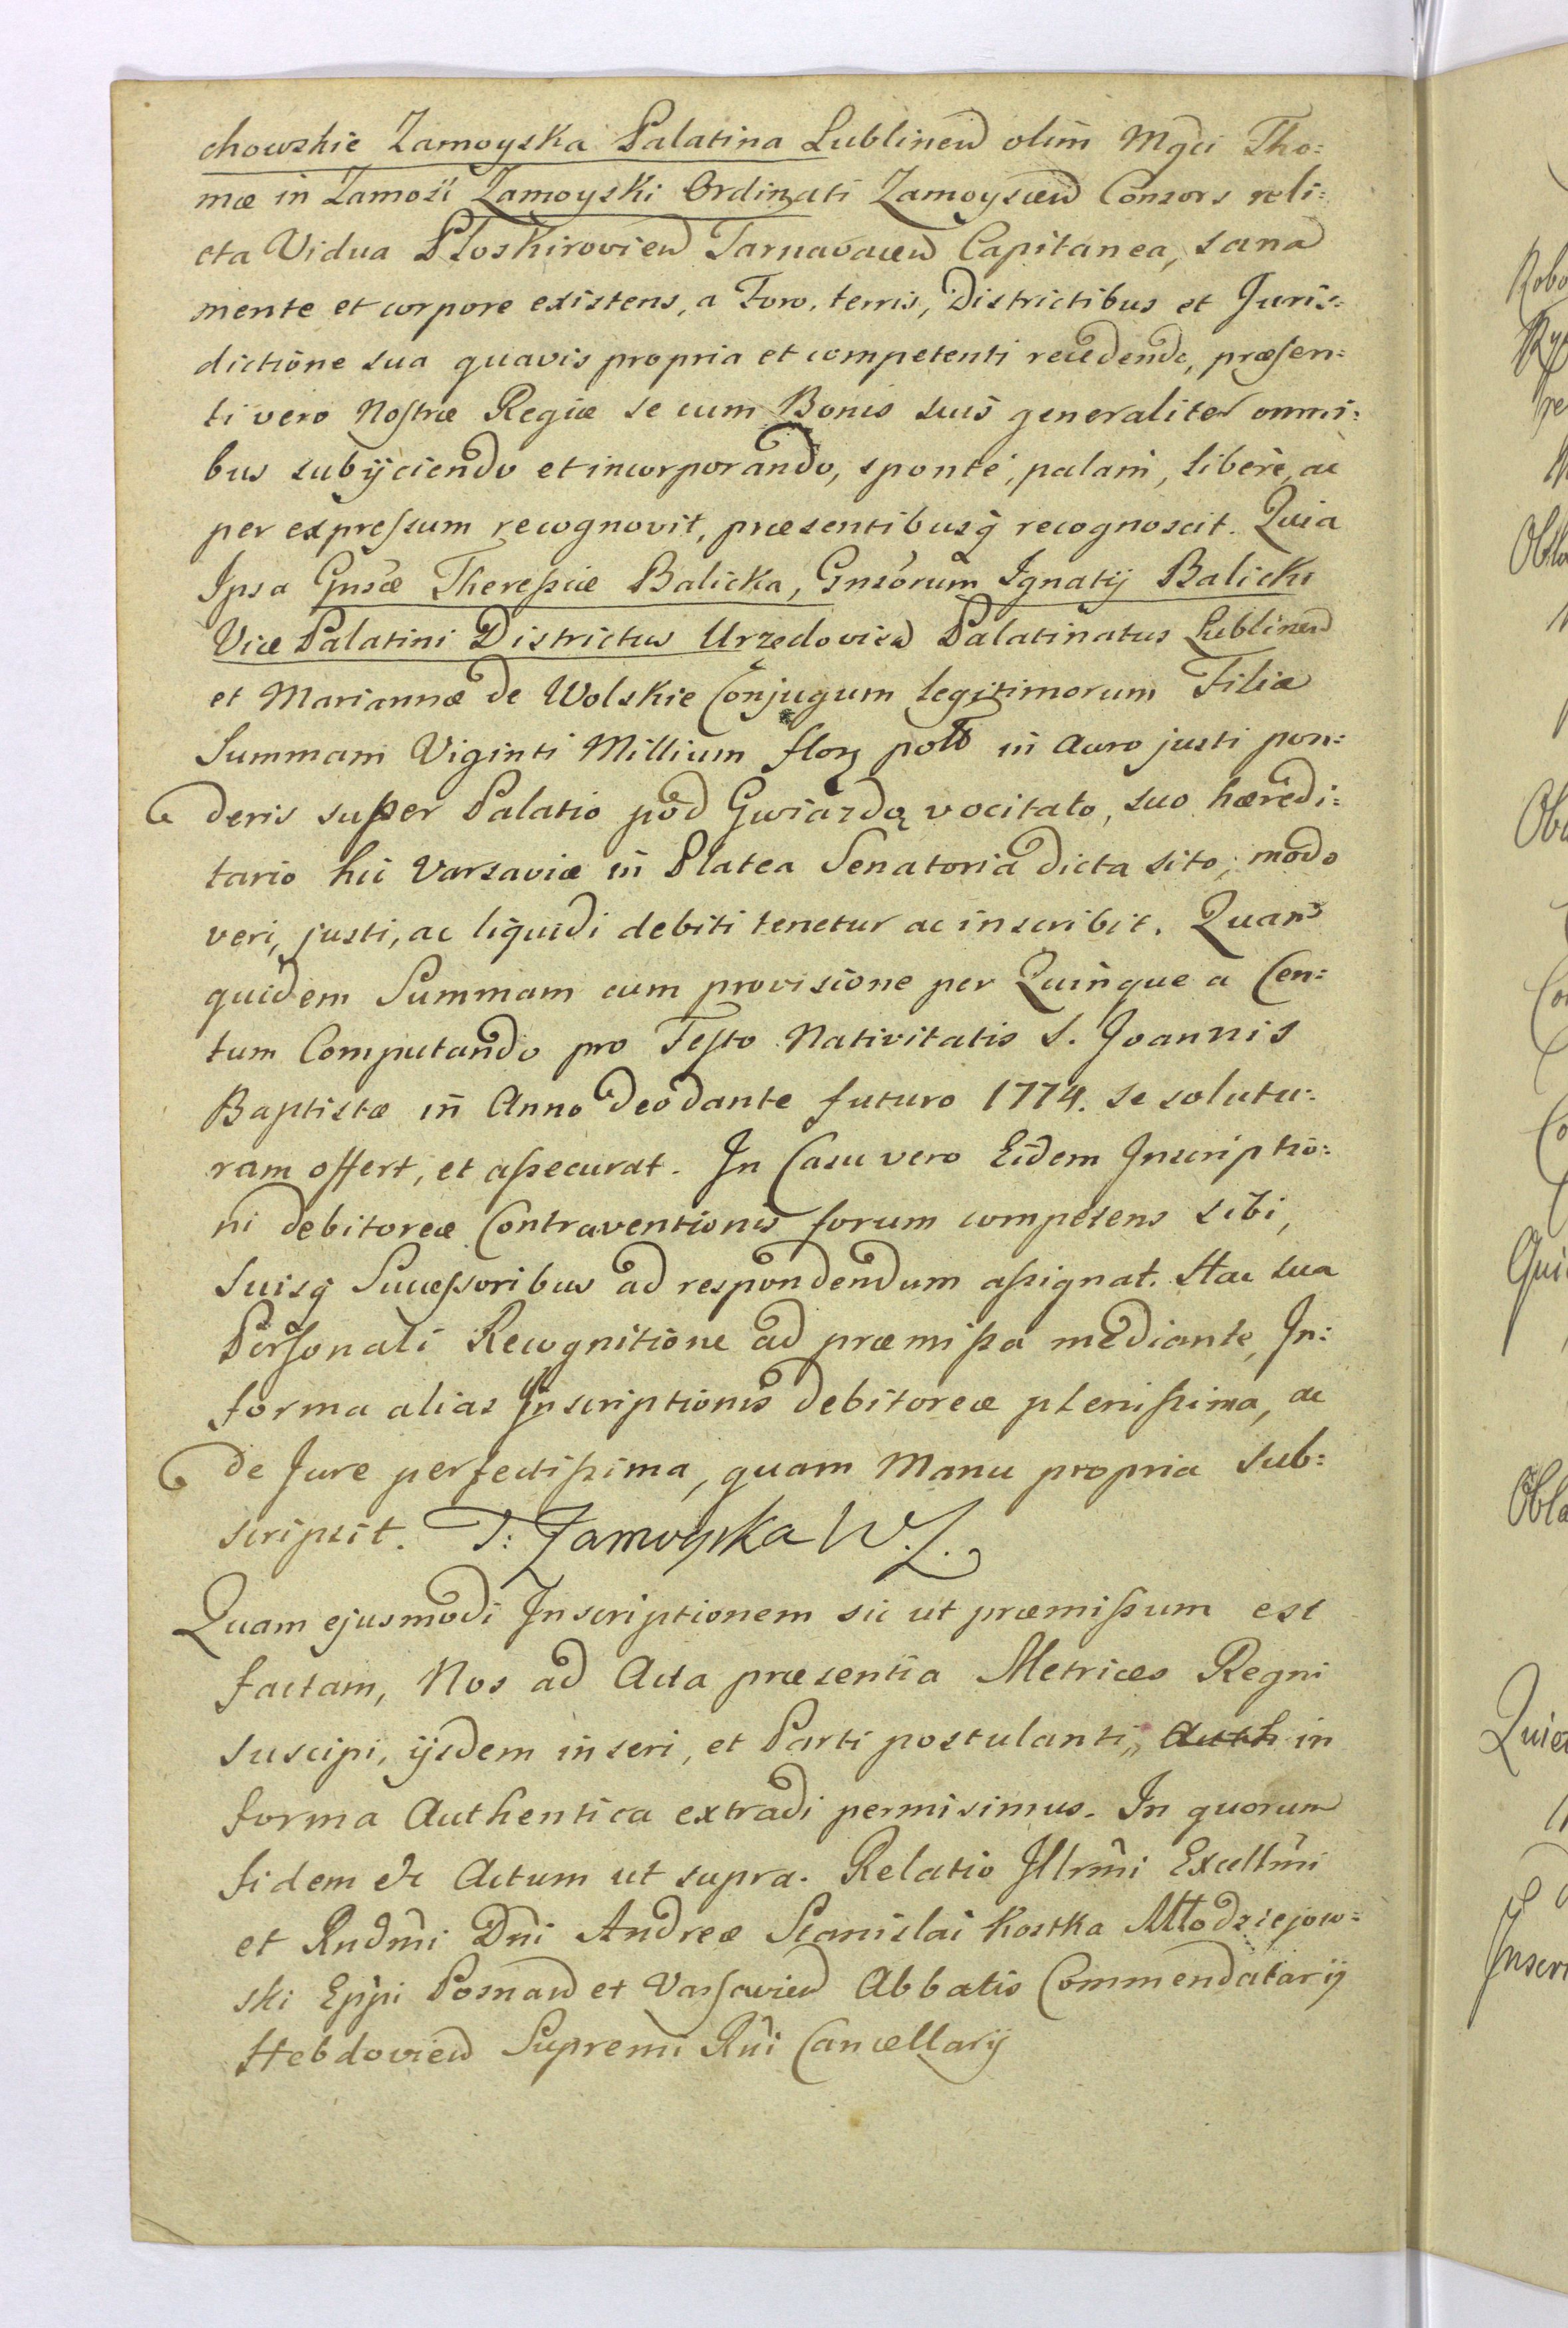 chowskie Zamoyska Palatina Lublinen olim Mgci Tho:
mæ in Zamoście Zamoyski Ordinati Zamoyscen Consors reli:
cta Vidua Płoskirovien Tarnavacen Capitanea, sana
mente et corpore existens, a Foro, terris, Districtibus et Juris:
dictione sua quavis propria et competenti recedendo, præsen:
ti vero Nostræ Regiæ se cum Bonis suis generaliter omni:
bus subijciendo et incorporando, sponte, palam, libere, ac
per expressum recognovit, præsentibusq recognoscit. Quia
Ipsa Gnsæ Theressiæ Balicka, Gnsorum Ignatij Balicki
Vice Palatini Districtus Urzędovien Palatinatus Lublinen
et Mariannæ de Wolskie Conjugum legitimorum Filiæ
Summam Viginti Millium flor poll in auro justi pon:
deris super Palatio pod Gwiazdą vocitato, suo hæredi:
tario hic Varsaviæ in Platea Senatoria dicta sito, modo
veri, justi, ac liquidi debiti tenetur ac inscribit. Quam
quidem Summam cum provisione per Quinque a Cen:
tum Computando pro Festo Nativitatis S. Joannis
Baptistæ in Anno deo dante futuro 1774. se solutu:
ram offert, et assecurat. In Casu vero Eidem Inscriptio:
ni debitoreæ Contraventionis forum competens sibi,
suisq Successoribus ad respondendum assignat. Hac sua
Personali Recognitione ad præmissa mediante, In:
forma alias Inscriptionis debitoreæ plenissima, ac
de Jure perfectissima, quam Manu propria sub:
scripsit. T: Zamoyska W. L.
Quam ejusmodi Inscriptionem sic ut præmissum est
factam, Nos ad Acta præsentia Metrices Regni
suscipi, ijsdem inseri, et Parti postulanti, Auth in
forma Authentica extradi permisimus. In quorum
fidem etc Actum ut supra. Relatio Illrmi Excellmi
et Rndmi Dni Andreæ Stanislai Kostka Młodziejow:
ski Eppi Posnan et Varsavien Abbatis Commendatarij
Hebdovien Supremi Rni Cancellarij